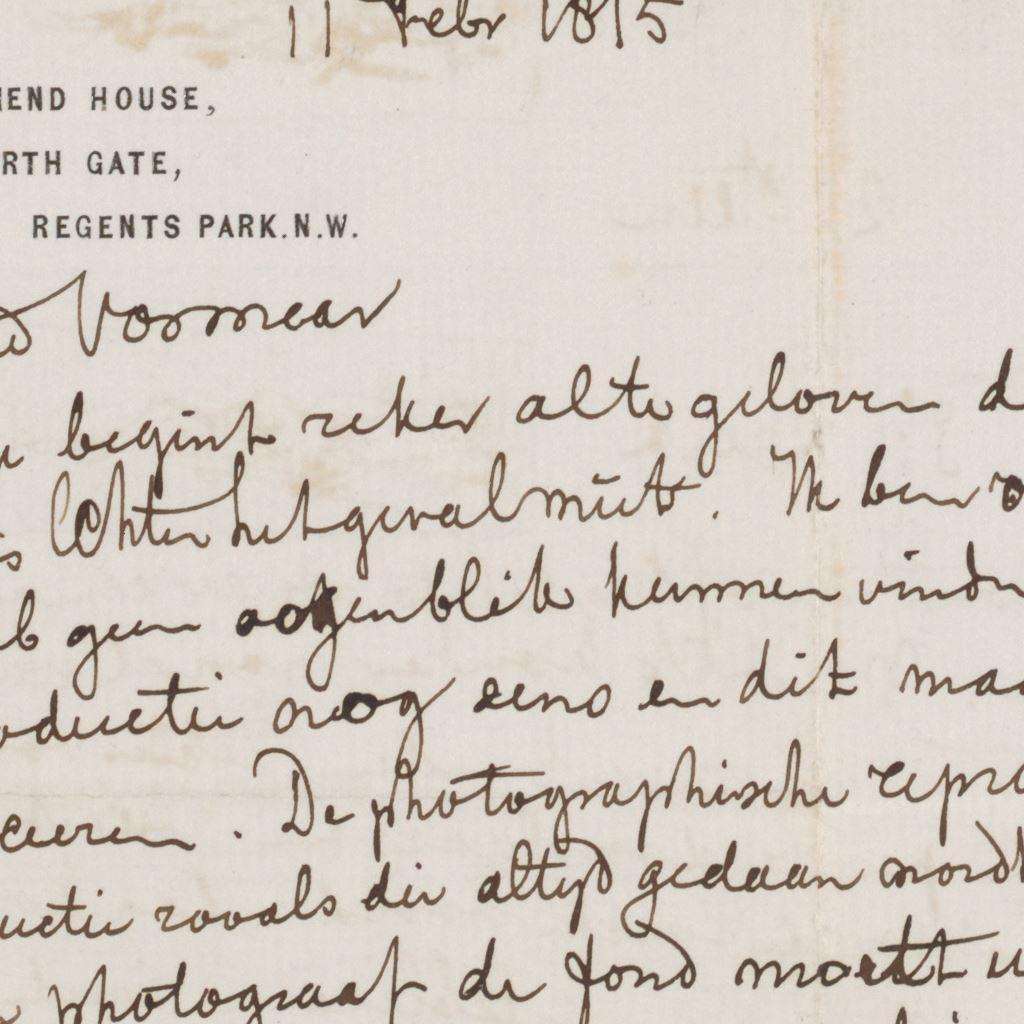 11 Febr 1875
END HOUSE,
RTH GATE,
REGENTS PARK.N.W.
Vosmaer
begint zeker al te geloven d
Echter het geval niet. Ik ben zo
b geen oogenblik kunnen vinden
oductie nog eens en dit maa
ceeren. De photographische repro
uctie zooals die altyd gedaan wordt
photograaf de fond moet u